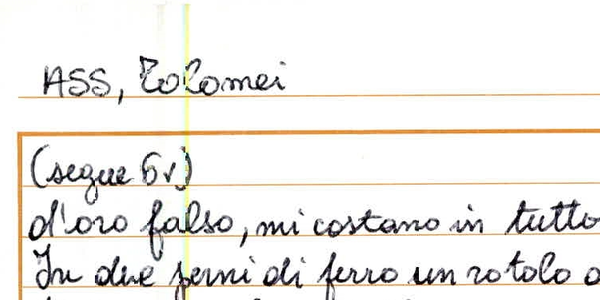 ASS, Tolomei
(segue 6v)
d'oro falso, mi costano in tutto
In due perni di ferro un rotolo